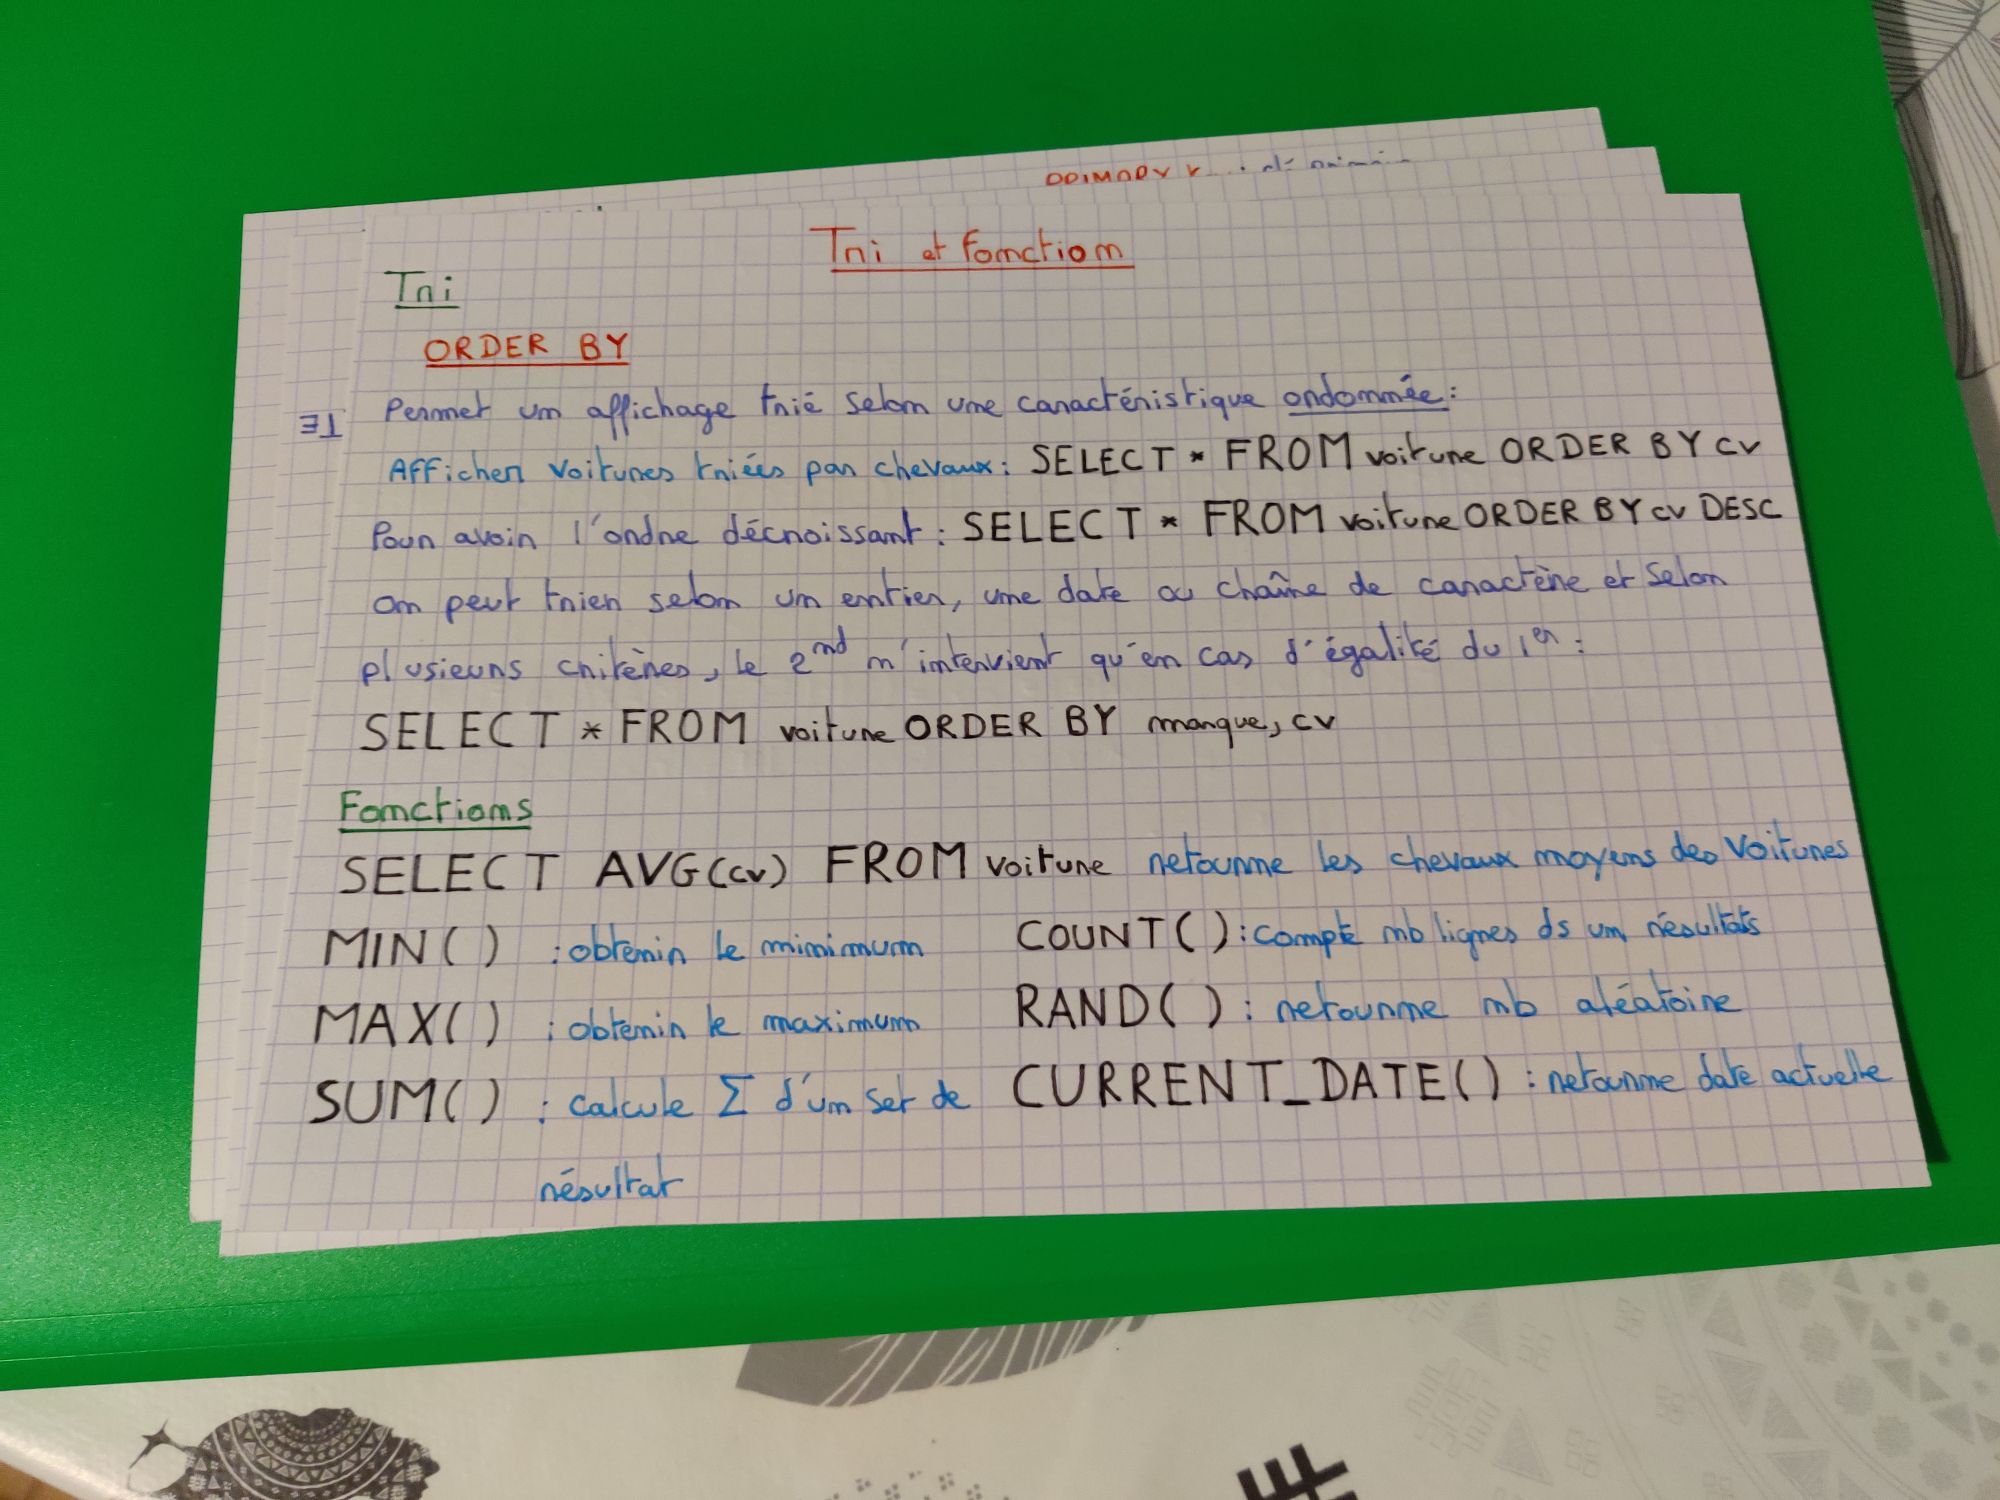 Tri et Fonction
Tri
ORDER BY
Permet un affichage trié selon une caractéristique ordonnée :
Afficher voitures triées par chevaux : SELECT * FROM voiture ORDER BY cv
Pour avoir l'ordre décroissant : SELECT * FROM voiture ORDER BY cv DESC
on peut trier selon un entier, une date ou chaîne de caractère et selon
plusieurs critères, le 2nd n'intervient qu'en cas d'égalité du 1er :
SELECT * FROM voiture ORDER BY marque, cv
Fonctions
SELECT AVG(cv) FROM voiture retourne les chevaux moyens des voitures
MIN() : obtenir le minimum COUNT() : compte nb lignes ds un résultats
MAX() : obtenir le maximum RAND() : retourne nb aléatoire
SUM() : calcule Σ d'un set de CURRENT_DATE() : retourne date actuelle
résultat